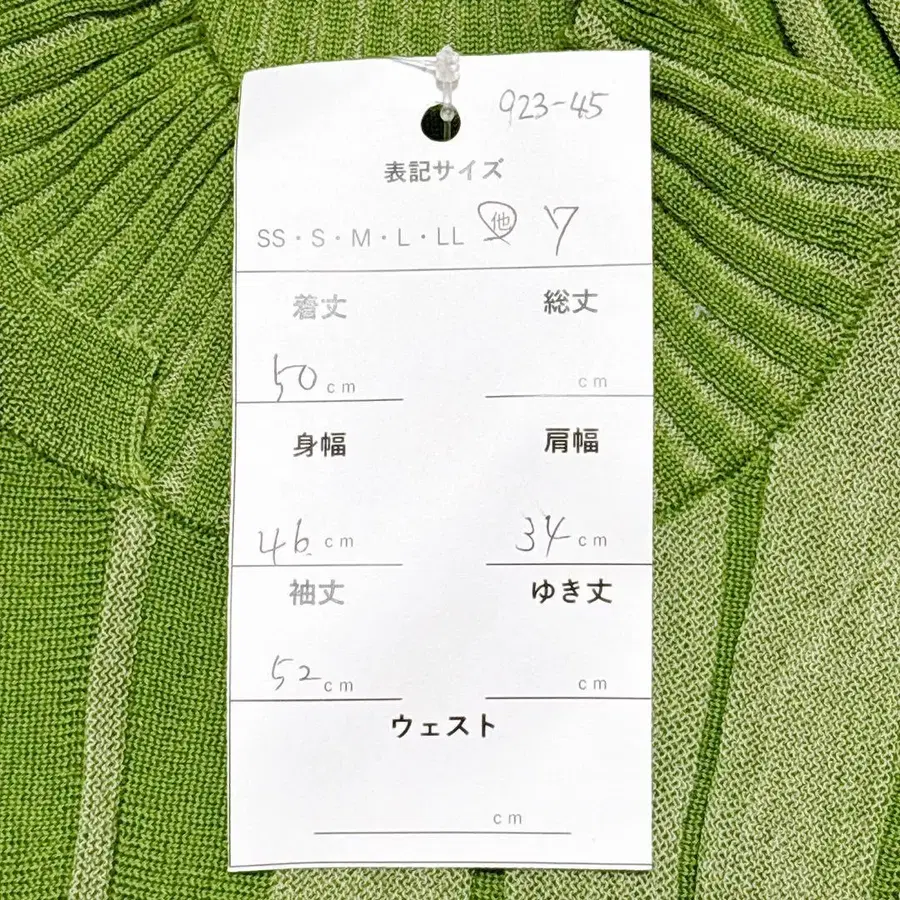 923-45
表記サイズ
SS・S・M・L・LL 他 7
着丈 総丈
50 cm cm
身幅 肩幅
46 cm 34 cm
袖丈 ゆき丈
52 cm cm
ウェスト
cm